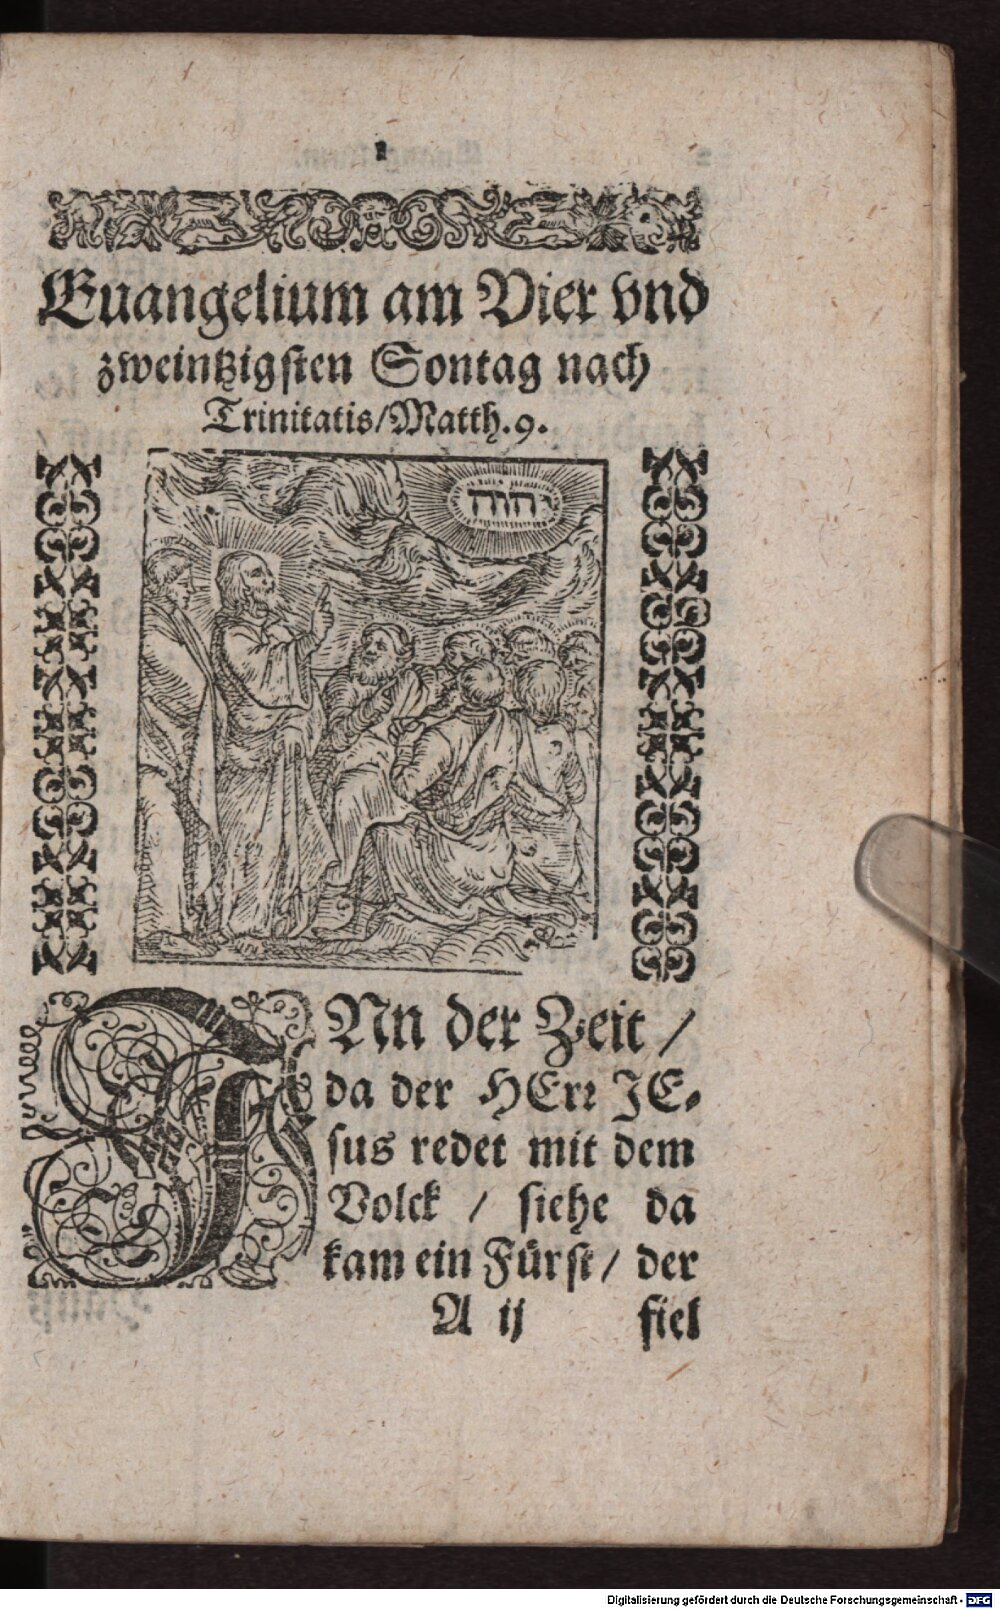 Euangelium am Vier vnd
zweintzigsten Sontag nach
Trinitatis/Matth.9.
יהוה
JNn der Zeit /
da der HErr JE-
sus redet mit dem
Volck / siehe da
kam ein Fürst/ der
A ij fiel
Digitalisierung gefördert durch die Deutsche Forschungsgemeinschaft - DFG